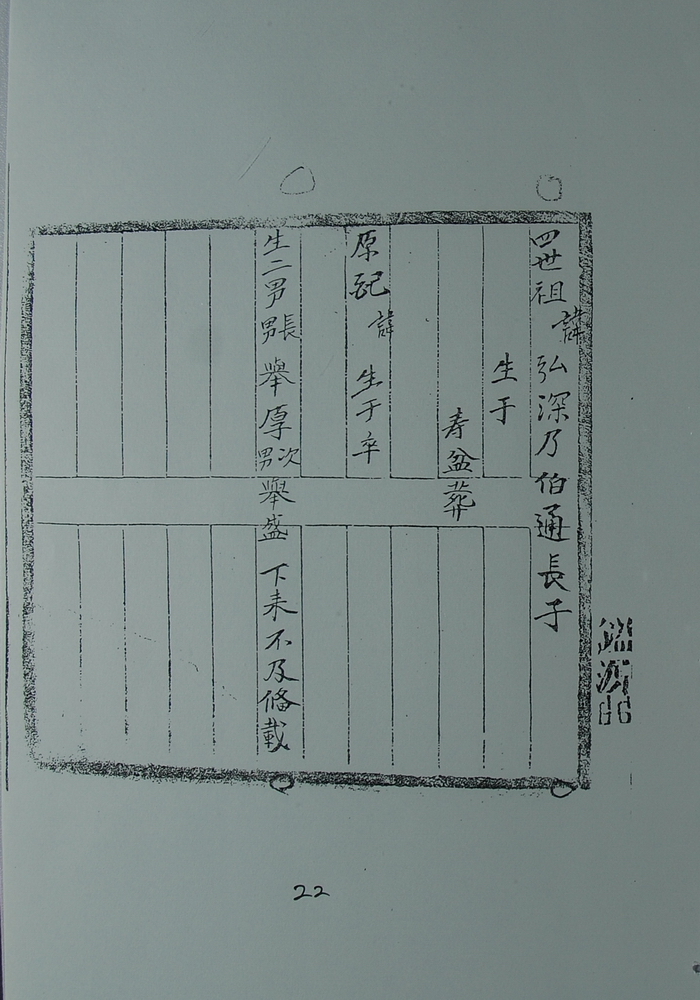 四世祖諱弘深乃伯通長子
生于
寿盆葬
原配諱生于卒
生二男長男舉厚次男舉盛下未不及俻載
22